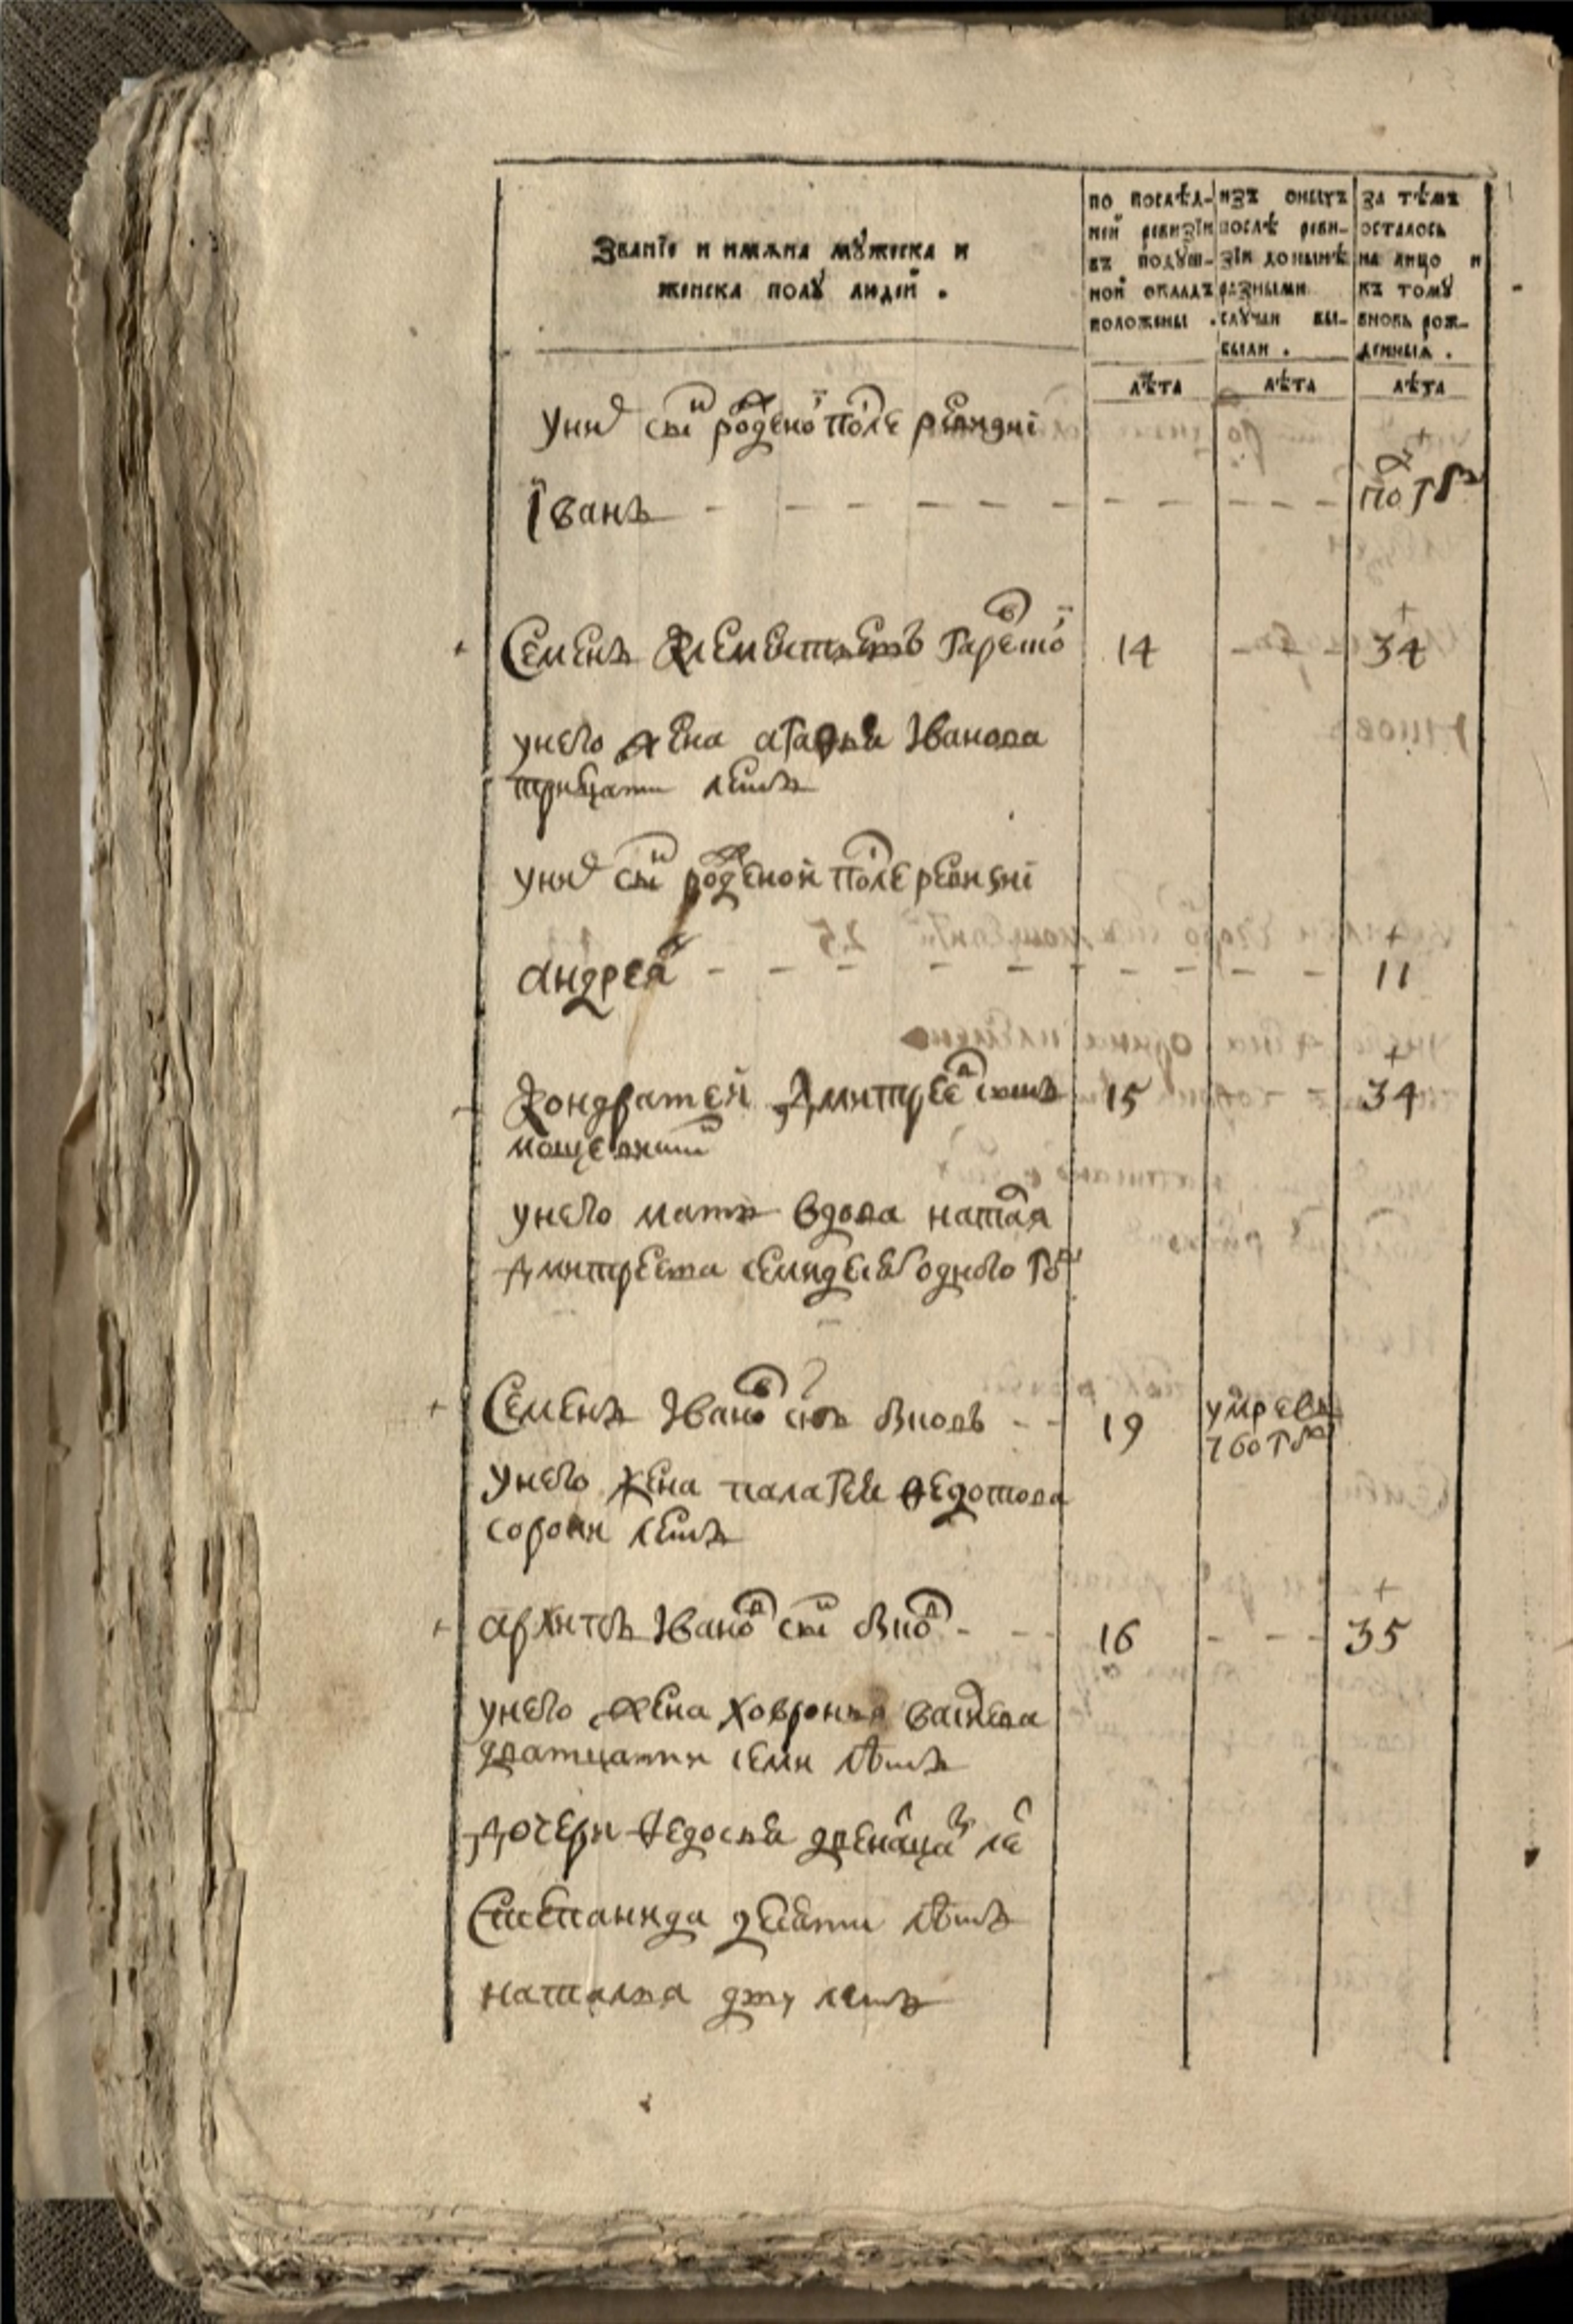 Званїе и имяна мужеска и
женска полу людей .
по послѣд-
ней ревизїи
въ подуш-
ной окладъ
положены .
изъ оныхъ
послѣ реви-
зїи до нынѣ
разными
случаи вы-
были .
за тѣмъ
осталось
на лицо и
къ тому
вновь рож-
денныя .
лѣта
лѣта
лѣта
у них сын рожденой после ревизиї
Їванъ - - - - - - - - - - полгода
Семенъ Клементьевъ 14 - - 34
у него жена агафья Iванова
тритцати летъ
у них сын рожденой после ревизиї
андрей - - - - - - - - - 11
Кондратей Дмитреев сынъ 15 34
у него мать вдова наталья
Дмитрева семидесят одного году
Семенъ Iванов снъ - - 19 умре въ
760 году
у него жена палагея Федотова
сорока летъ
архипъ Iванов сын - - 16 - - - 35
у него жена ховронья
дватцати семи лѣтъ
дочери Федосья двенацать лет
Степанида десяти лѣтъ
наталья дву летъ